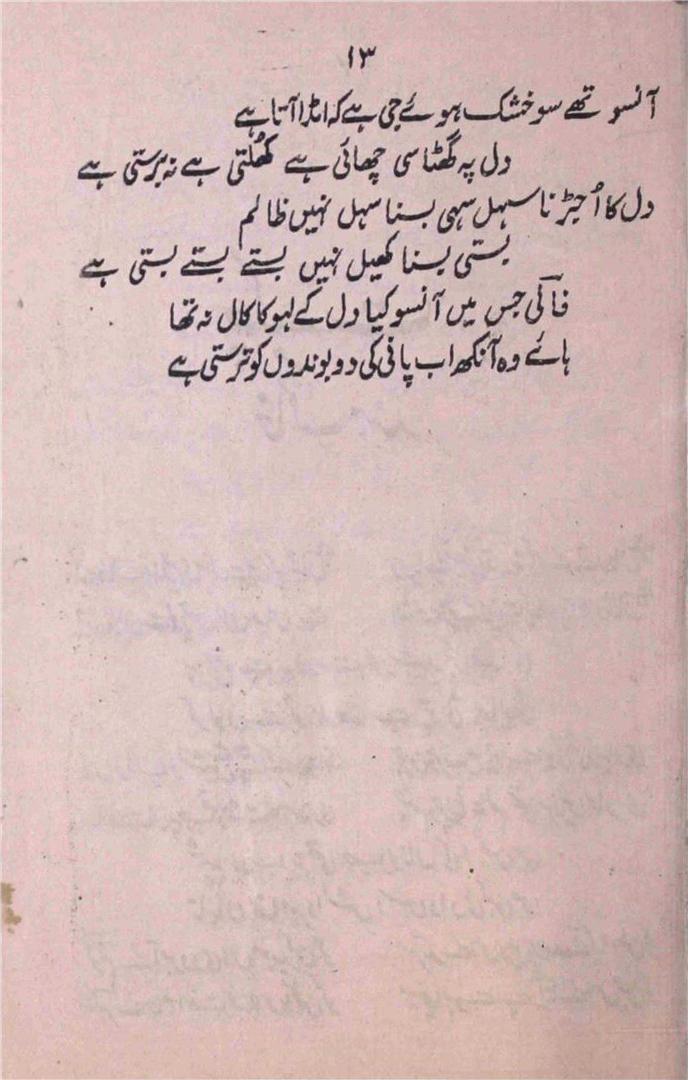 ۱۳
آنسو تھے سو خشک ہوئے جی ہے کہ امڈا آتا ہے
دل پہ گھٹا سی چھائی ہے کھُلتی ہے نہ برستی ہے
دل کا اُجڑنا سہل سہی بسنا سہل نہیں ظالم
بستی بسنا کھیل نہیں بستے بستے بستی ہے
فانی جس میں آنسو کیا دل کے لہو کا کال نہ تھا
ہائے وہ آنکھ اب پانی کی دو بوندوں کو ترستی ہے